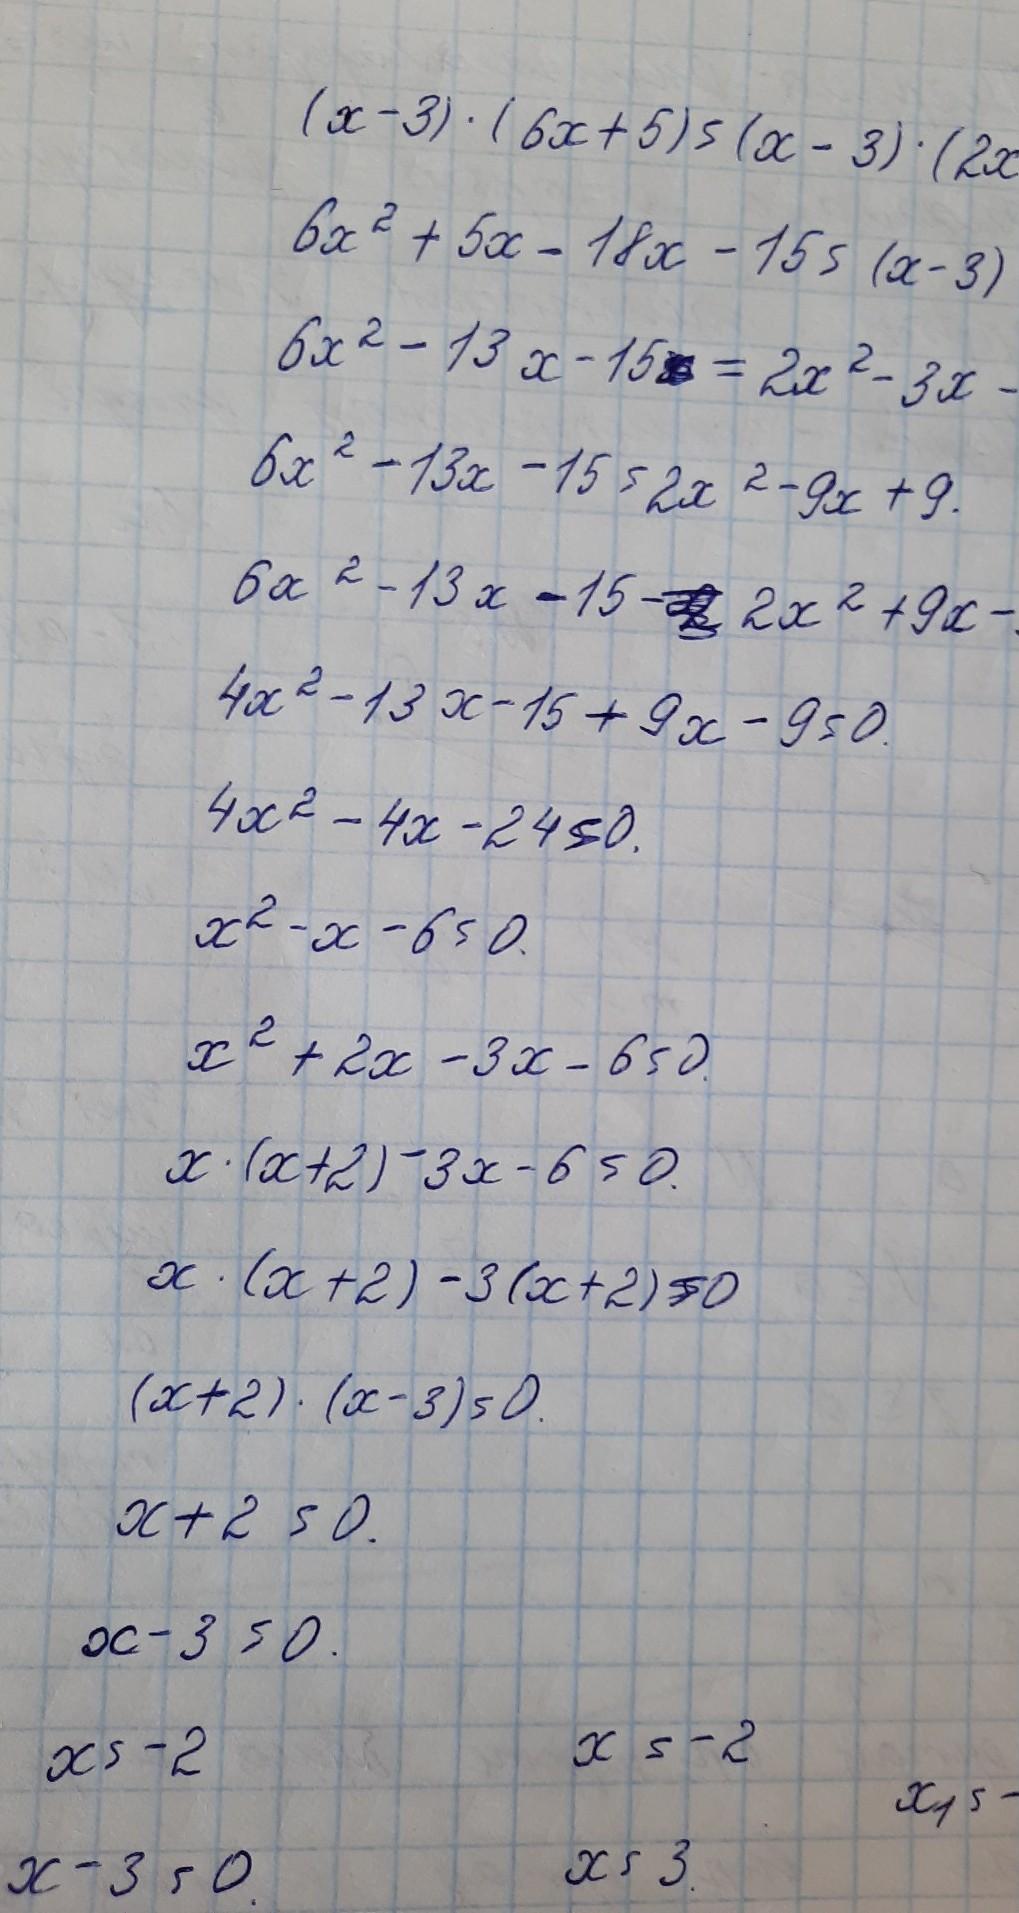 (x-3)·(6x+5)=(x-3)·(2x
6x²+5x-18x-15=(x-3)
6x²-13x-15=2x²-3x-
6x²-13x-15=2x²-9x+9.
6x²-13x-15-2x²+9x-
4x²-13x-15+9x-9=0.
4x²-4x-24=0.
x²-x-6=0.
x²+2x-3x-6=0.
x·(x+2)-3x-6=0.
x·(x+2)-3(x+2)=0
(x+2)·(x-3)=0.
x+2=0.
x-3=0.
x=-2 x=-2
x₁=-
x-3=0. x=3.